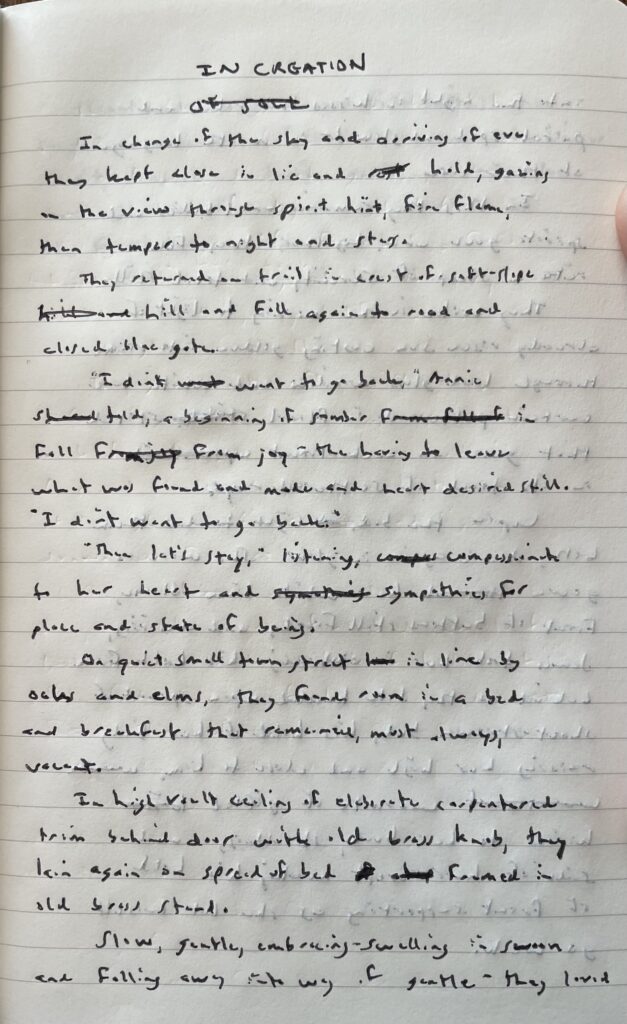 IN CREATION
In change of the sky and deriving of eve
they kept close in lie and hold, gazing
on the view through spirit hint, firm flame,
then temper to night and stars.
They returned on trail in crest of soft-slope
hill and fall again to road and
closed blue gate.
"I don't want to go back," Annie
told, a beginning of somber in
fall from joy - the having to leave
what was found and made and heart desired still.
"I don't want to go back."
"Then let's stay," listening, compassionate
to her heart and sympathies for
place and state of being.
On quiet small town street in line by
oaks and elms, they found room in a bed
and breakfast that remained, most always,
vacant.
In high vault ceiling of elaborate carpentered
trim behind door with old brass knob, they
lain again on spread of bed framed in
old brass stand.
Slow, gentle, embracing-swelling in swoon
and falling away into way of gentle - they loved